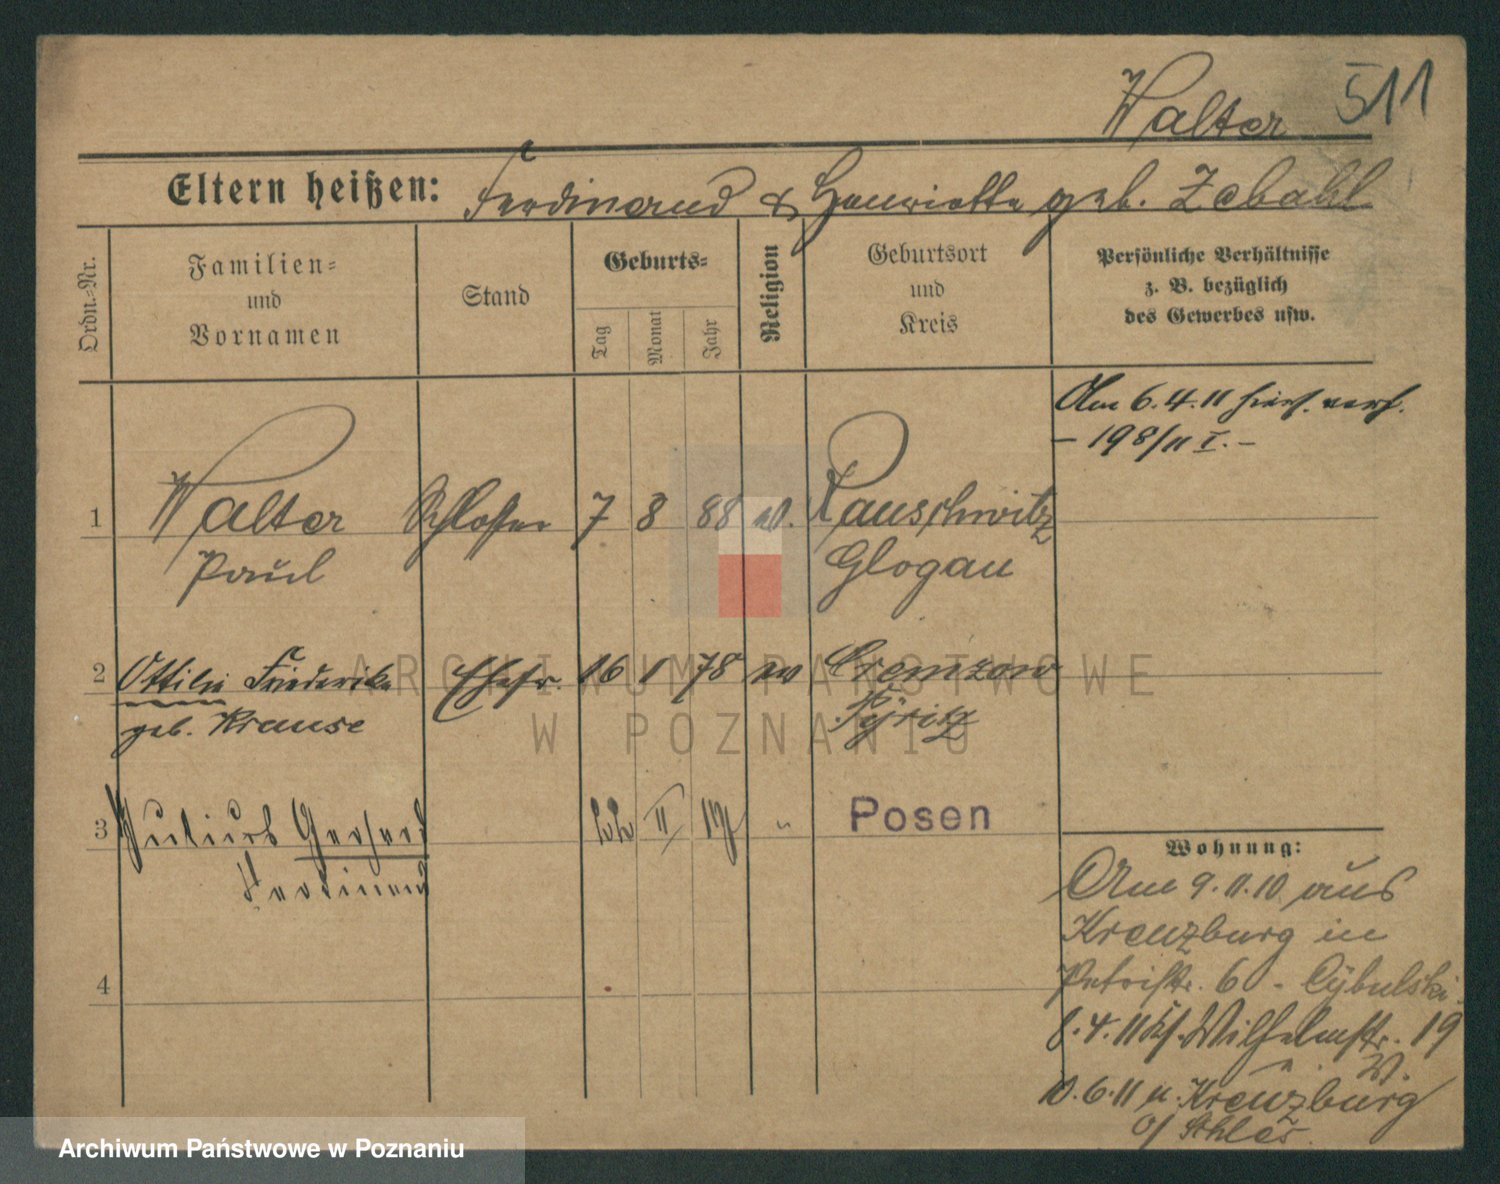 511
Walter
Eltern heißen: Ferdinand & Henriette geb. Zebahl
Ordn.=Nr.
Familien=
und
Vornamen
Stand
Geburts=
Tag
Monat
Jahr
Religion
Geburtsort
und
Kreis
Persönliche Verhältnisse
z. B. bezüglich
des Gewerbes usw.
Am 6.4.11 hier verh.
– 198/11 I. –
1 Walter Schlosser 7 8 88 ev. Rauschwitz
Paul Glogau
2 Ottilie Friederike Ehefr. 16 1 78 ev Cremzow
geb. Krause Pyritz
3 Julius Gerhard 22 II " Posen
Ferdinand
4
Wohnung:
Am 9.11.10 aus
Kreuzburg in
Petristr. 6 - Cybulski.
8.4.11 Wilhelmstr. 19
W.
10.6.11 n. Kreuzburg
o/ Schles.
ARCHIWUM PAŃSTWOWE
W POZNANIU
Archiwum Państwowe w Poznaniu